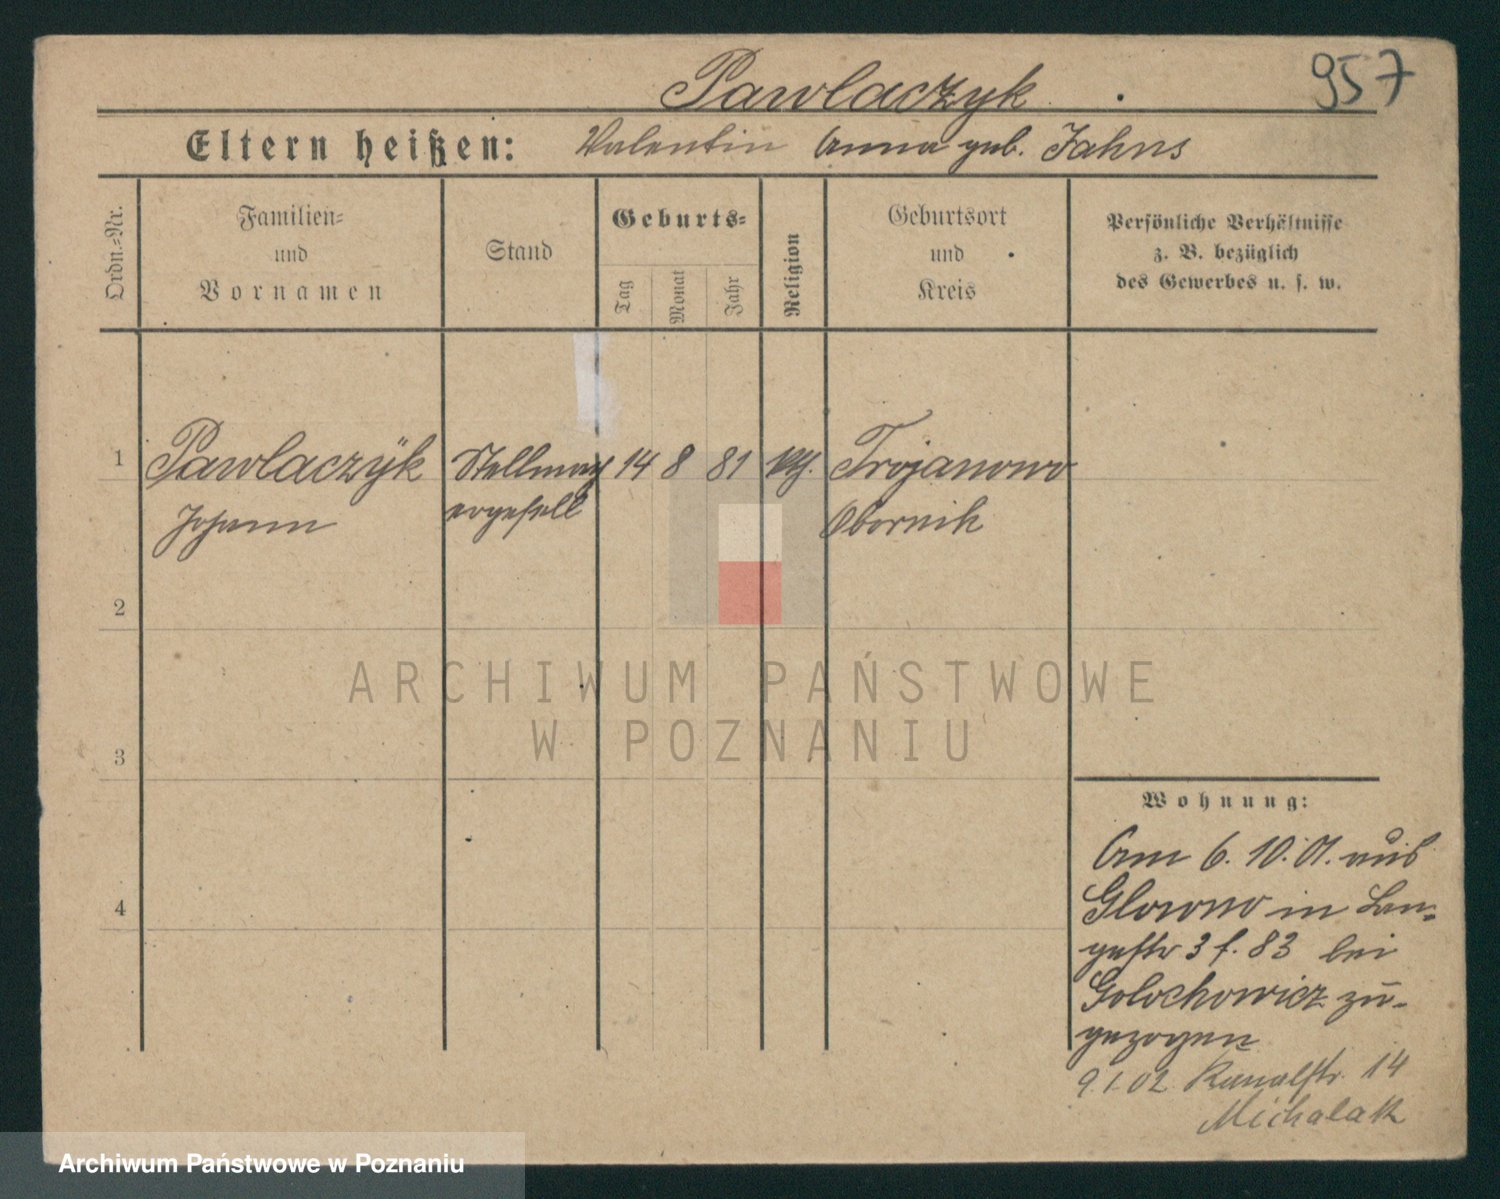 957
Pawlaczyk
Eltern heißen: Valentin Anna geb. Jahns
Ordn.-Nr.
Familien-
und
Vornamen
Stand
Geburts-
Tag
Monat
Jahr
Religion
Geburtsort
und
Kreis
Persönliche Verhältnisse
z. B. bezüglich
des Gewerbes u. s. w.
1 Pawlaczÿk Stellmach 14 8 81 kth. Trojanowo
Johann ergesell Obornik
2
3
4
Wohnung:
Am 6. 10. 01. aus
Glowno in Lan-
gestr 3 f. 83 bei
Golochowicz zu-
gezogen
9.1.02 Kanalstr. 14
Michalak
ARCHIWUM PAŃSTWOWE
W POZNANIU
Archiwum Państwowe w Poznaniu